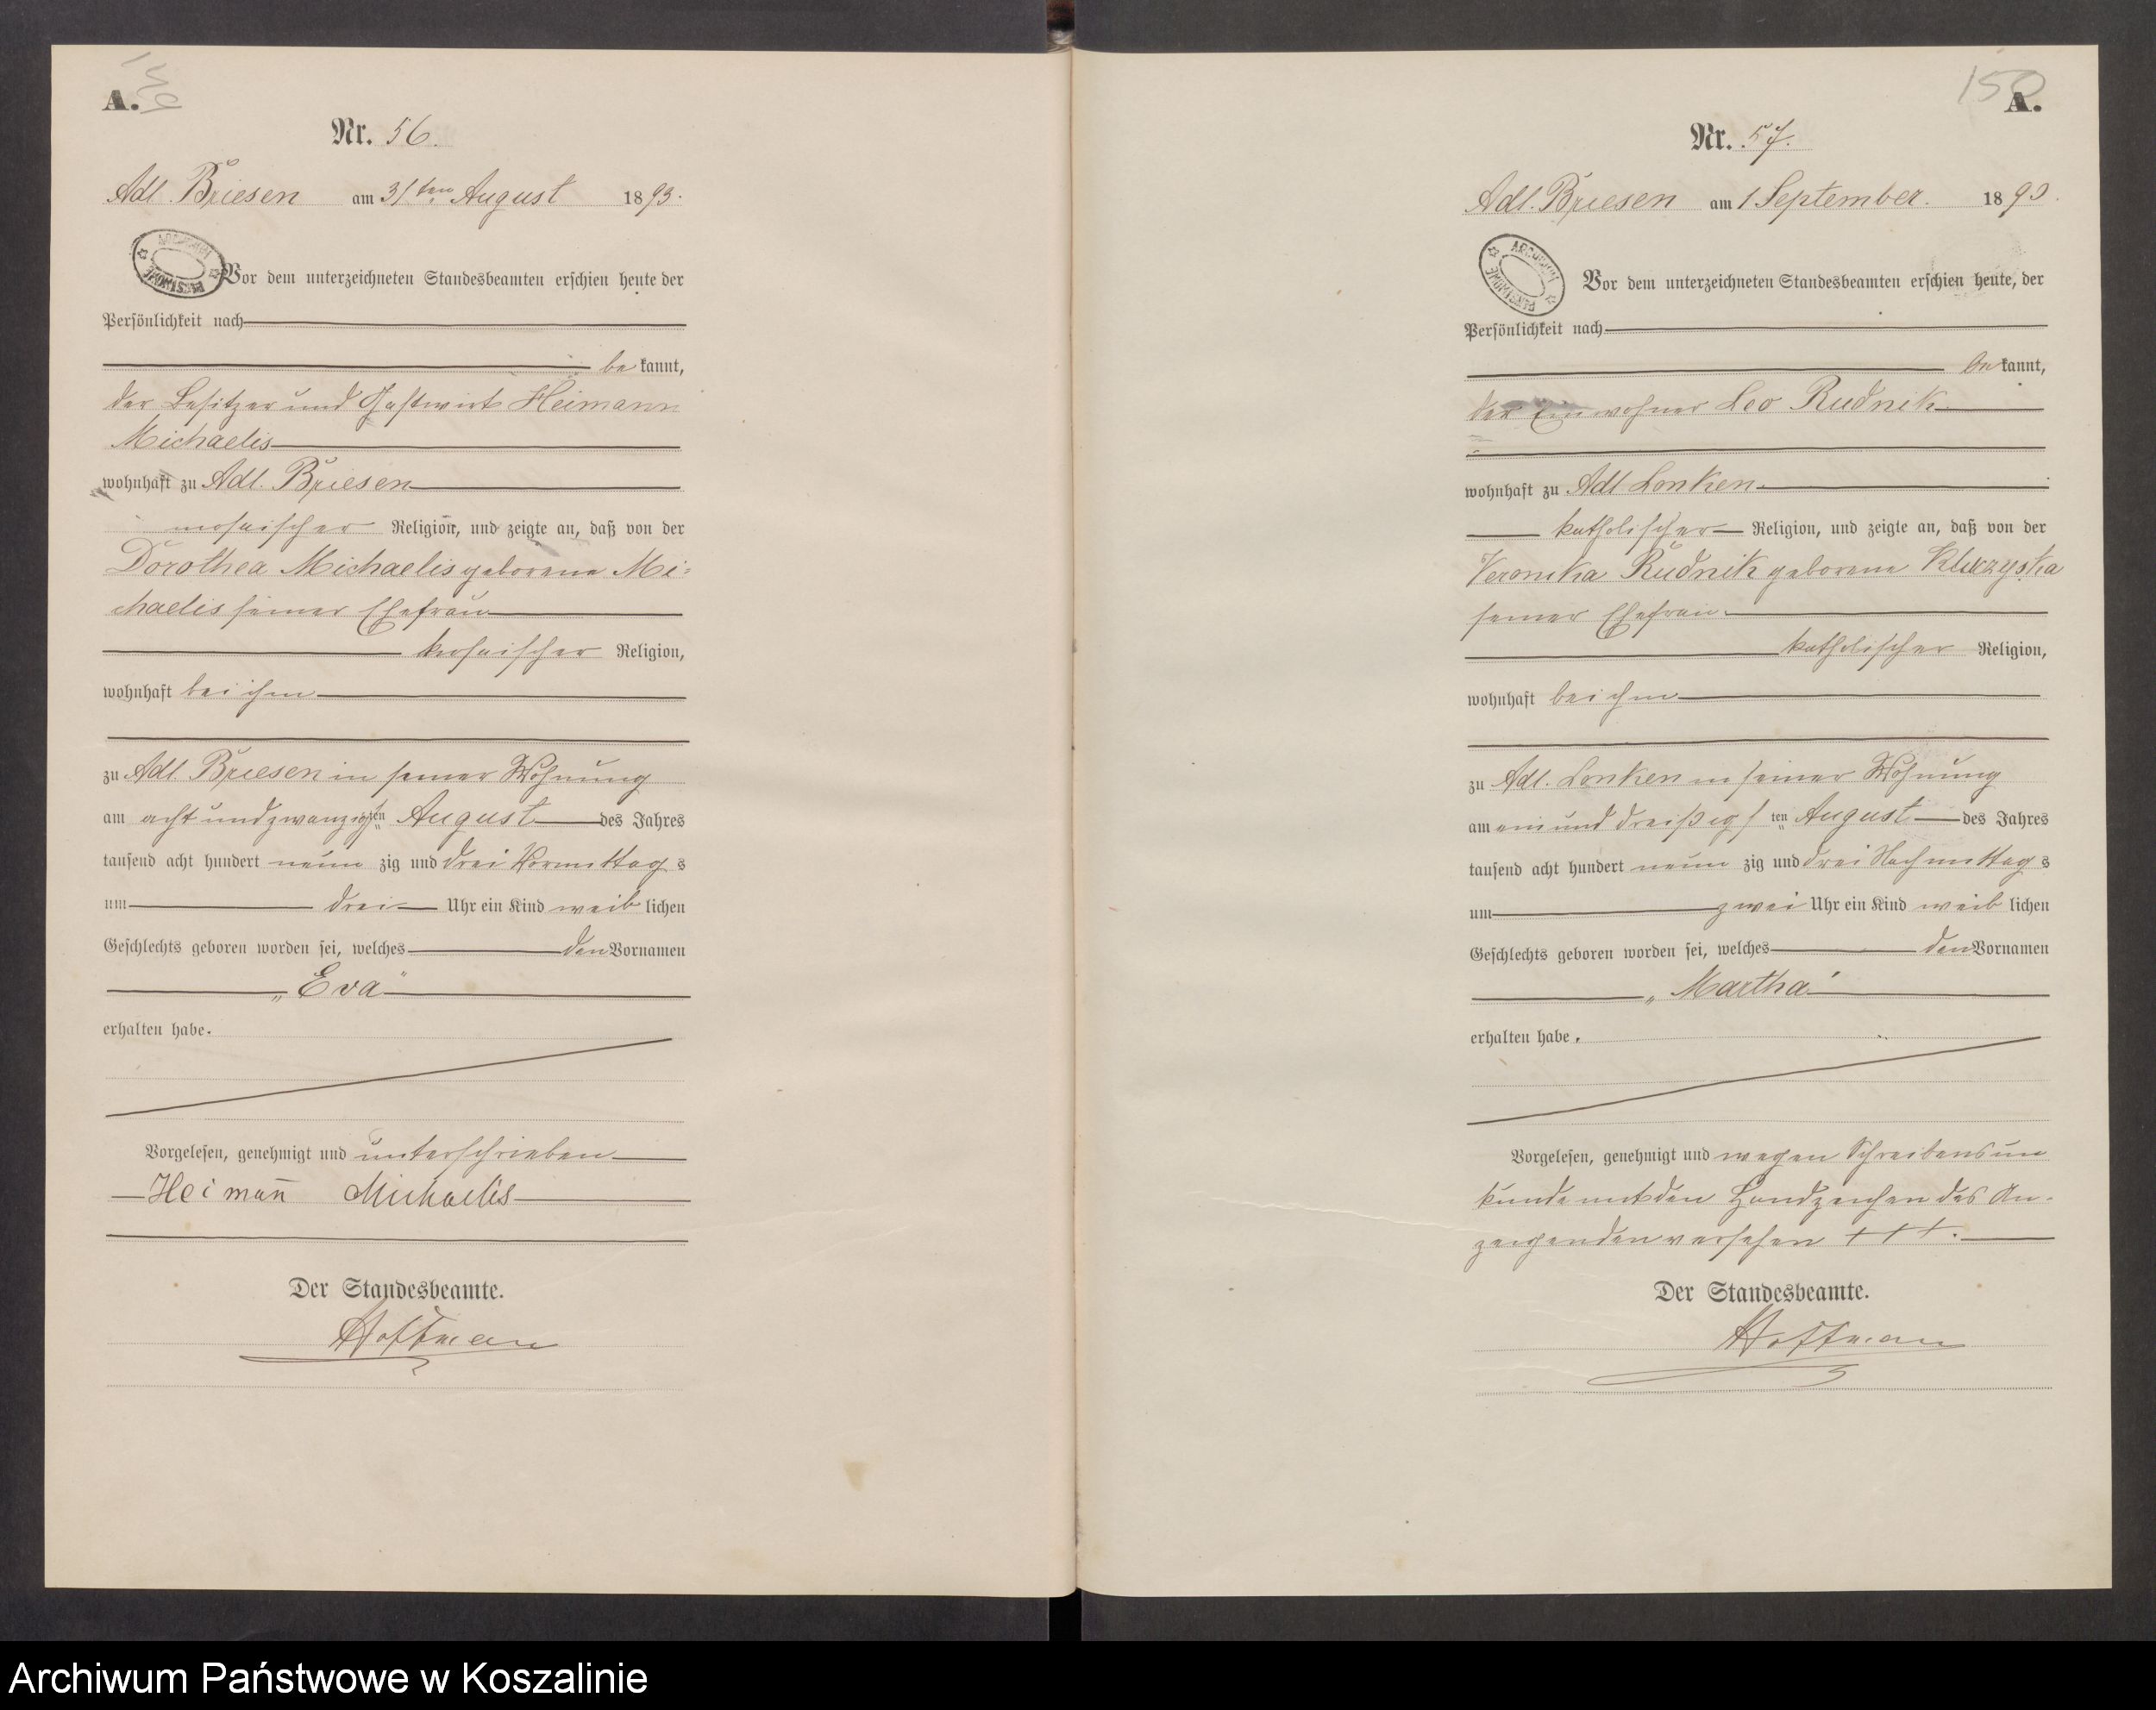 A.
Nr. 56.
Adl. Briesen am 31ten August 1893.
ARCHIWUM PAŃSTWOWE
Vor dem unterzeichneten Standesbeamten erschien heute der
Persönlichkeit nach
be kannt,
der Besitzer und Gastwirt Heimann
Michaelis
wohnhaft zu Adl. Briesen
mosaischer Religion, und zeigte an, daß von der
Dorothea Michaelis geborene Mi-
chaelis seiner Ehefrau
mosaischer Religion,
wohnhaft bei ihm
zu Adl Briesen in seiner Wohnung
am acht und zwanzigsten August des Jahres
tausend acht hundert neun zig und drei Vormittag s
um drei Uhr ein Kind weib lichen
Geschlechts geboren worden sei, welches den Vornamen
„Eva“
erhalten habe.
Vorgelesen, genehmigt und unterschrieben
Heiman̄ Michaelis
Der Standesbeamte.
Hoffman
150
A.
Nr. 57.
Adl. Briesen am 1 September. 1893.
ARCHIWUM PAŃSTWOWE
Vor dem unterzeichneten Standesbeamten erschien heute, der
Persönlichkeit nach
be kannt,
der Einwohner Leo Rudnik
wohnhaft zu Adl Lonken
katholischer Religion, und zeigte an, daß von der
Veronika Rudnik geborene
seiner Ehefrau
katholischer Religion,
wohnhaft bei ihm
zu Adl. Lonken in seiner Wohnung
am ein und dreißigsten August des Jahres
tausend acht hundert neun zig und drei Nachmittag s
um zwei Uhr ein Kind weib lichen
Geschlechts geboren worden sei, welches den Vornamen
„Martha“
erhalten habe.
Vorgelesen, genehmigt und wegen Schreibensun
kunde mit den Handzeichen des An-
zeigenden versehen + + +.
Der Standesbeamte.
Hoffman
Archiwum Państwowe w Koszalinie